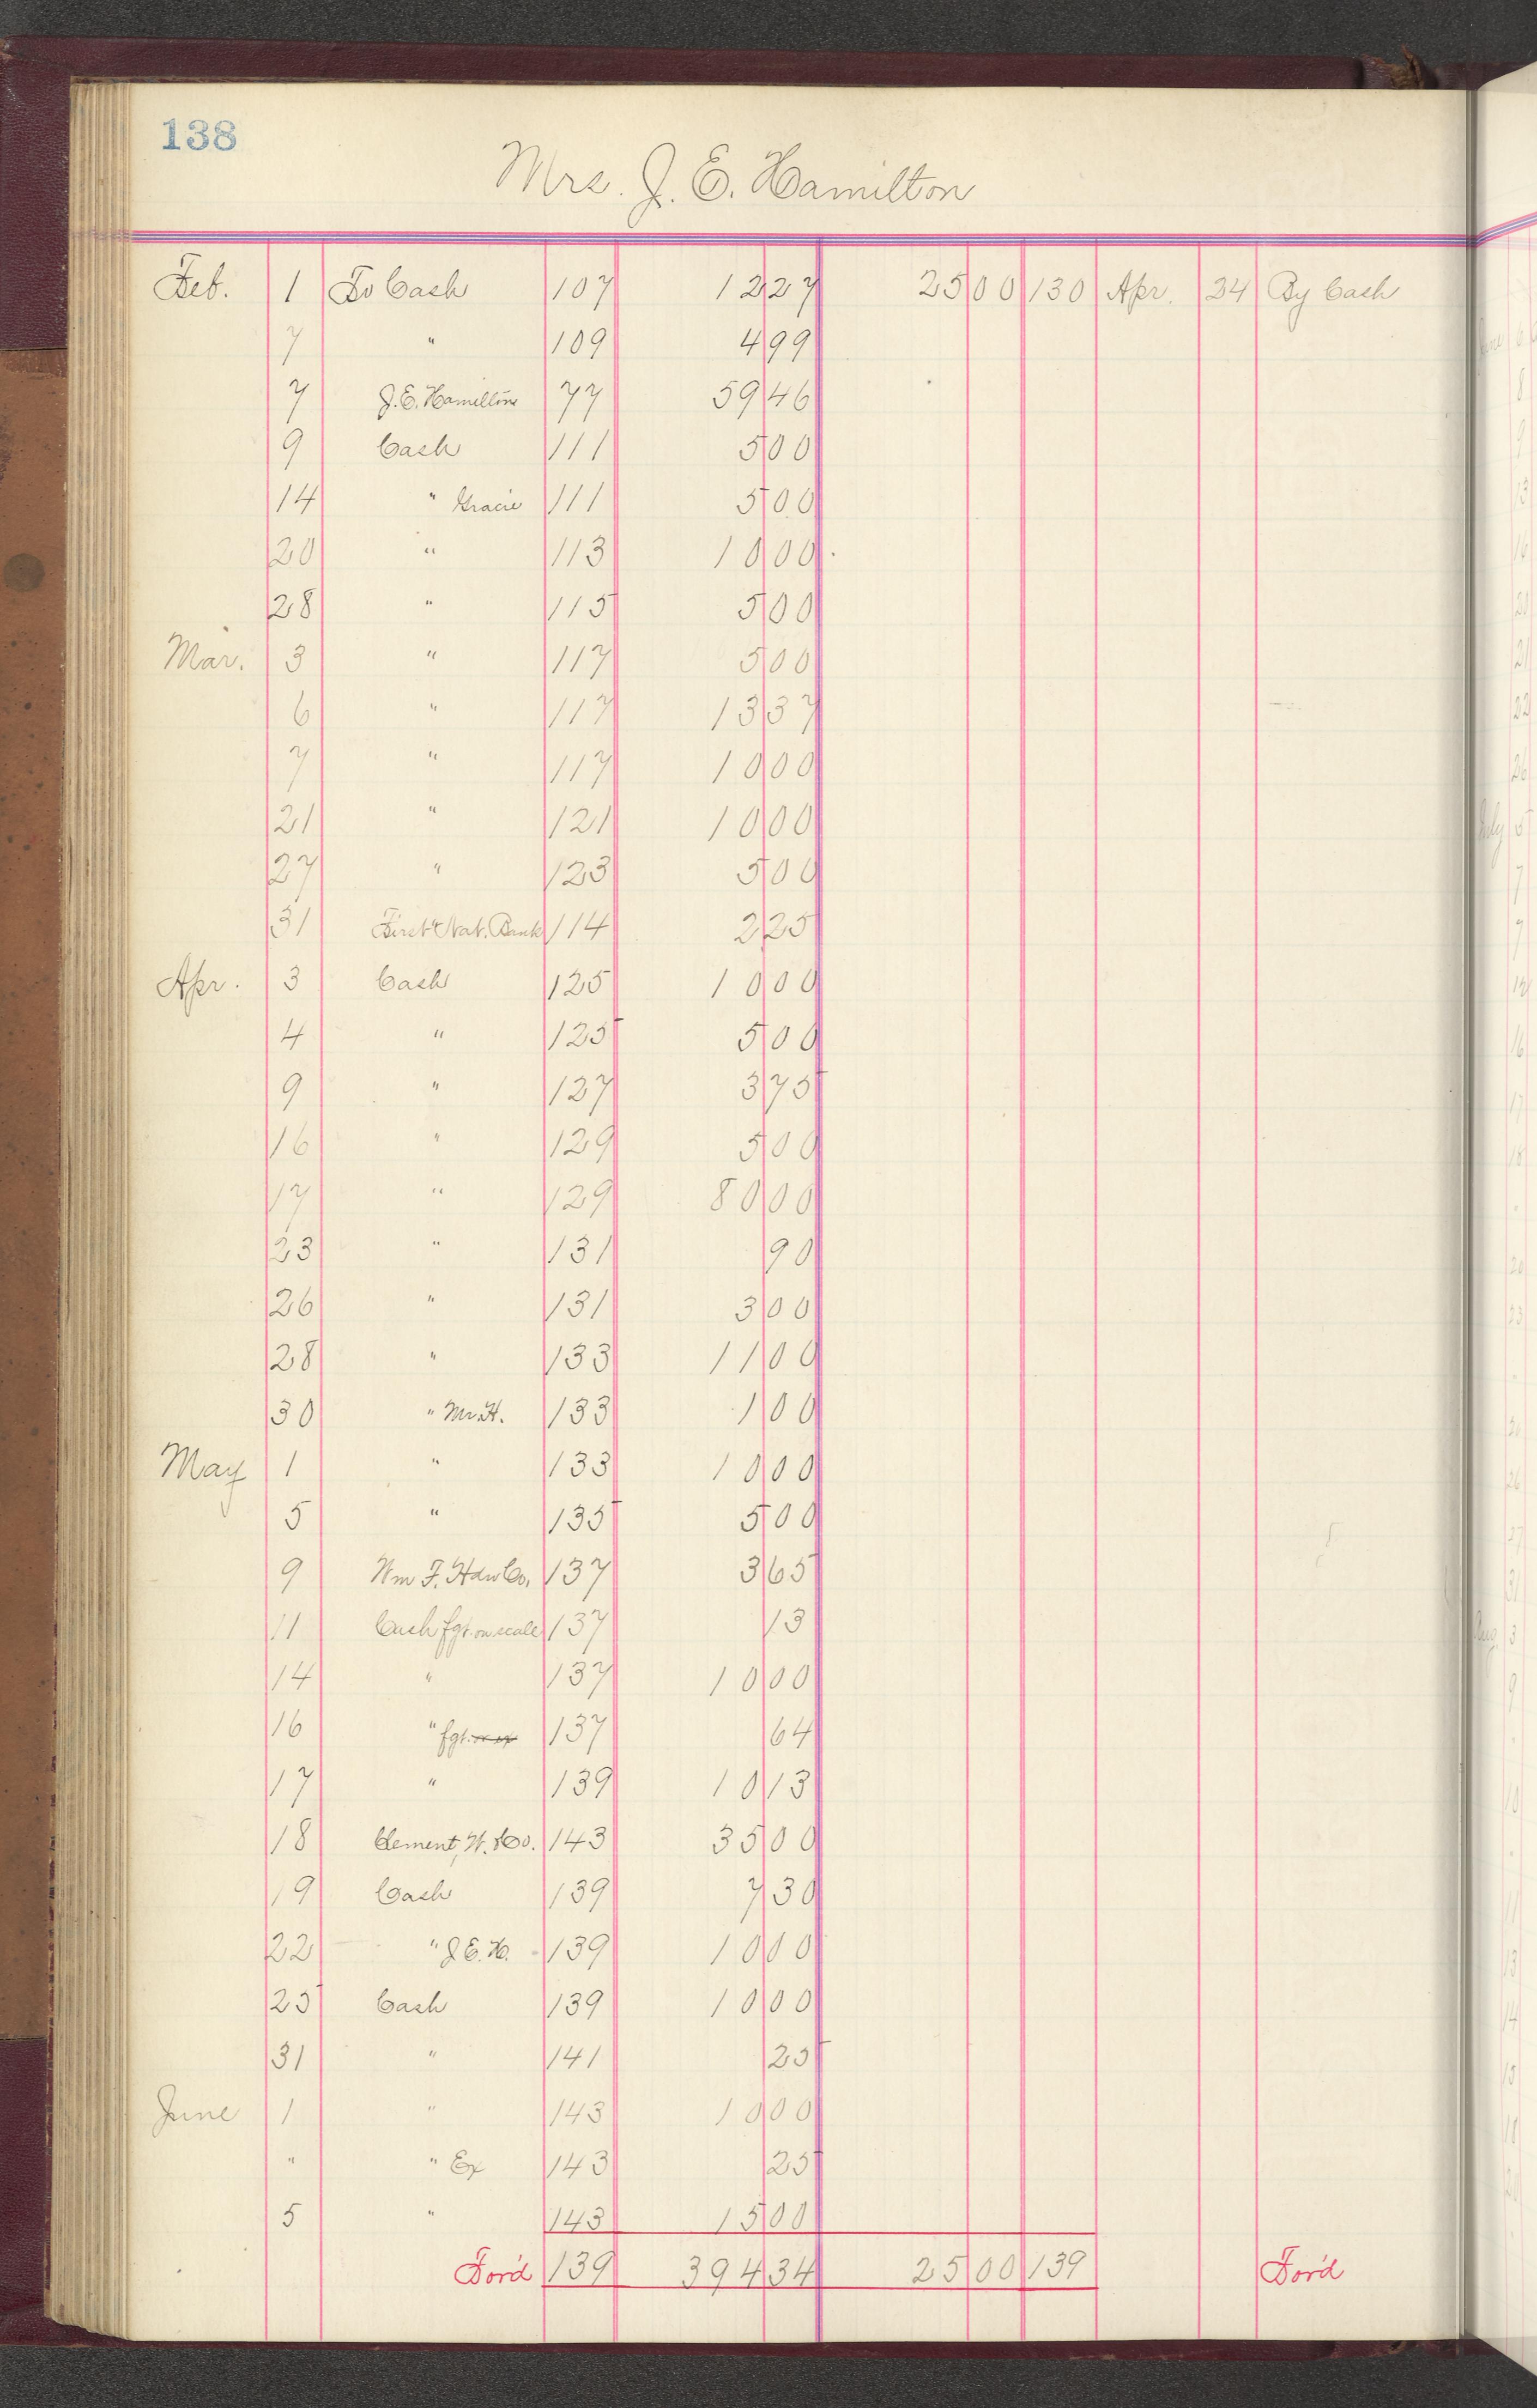 138
Mrs. J. E. Hamilton
Feb. 1 To Cash 107 12 27 25 00 130 Apr. 24 By Cash
7 " 109 4 99
7 J. E. Hamilton 77 59 46
9 Cash 111 5 00
14 " Gracie 111 5 00
20 " 113 10 00
28 " 115 5 00
Mar. 3 " 117 5 00
6 " 117 13 37
7 " 117 10 00
21 " 121 10 00
27 " 123 5 00
31 First Nat. Bank 114 2 25
Apr. 3 Cash 125 10 00
4 " 125 5 00
9 " 127 3 75
16 " 129 5 00
17 " 129 80 00
23 " 131 90
26 " 131 3 00
28 " 133 11 00
30 " Mr. H. 133 1 00
May 1 " 133 10 00
5 " 135 5 00
9 Wm F. Hdw Co. 137 3 65
11 Cash fgt. on scale 137 13
14 " 137 10 00
16 " fgt. 137 64
17 " 139 10 13
18 Clement, W. & Co. 143 35 00
19 Cash 139 7 30
22 " J. E. H. 139 10 00
25 Cash 139 10 00
31 " 141 25
June 1 " 143 10 00
" " Ex 143 25
5 " 143 15 00
For'd 139 394 34 25 00 139 For'd